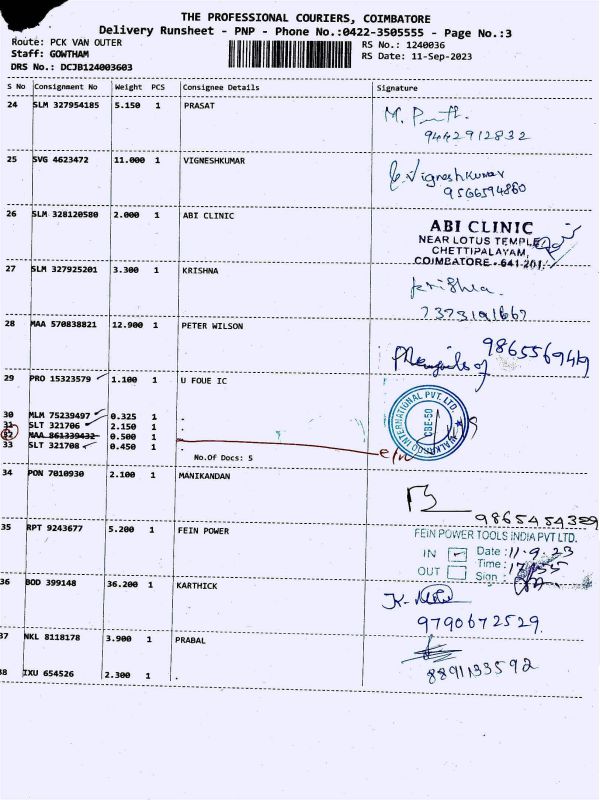 THE PROFESSIONAL COURIERS, COIMBATORE
Delivery Runsheet - PNP - Phone No.:0422-3505555 - Page No.:3
Route: PCK VAN OUTER RS No.: 1240036
Staff: GOWTHAM RS Date: 11-Sep-2023
DRS No.: DCJB124003603
S No Consignment No Weight PCS Consignee Details Signature
24 SLM 327954185 5.150 1 PRASAT
9442912832
25 SVG 4623472 11.000 1 VIGNESHKUMAR
Vigneshkumar
9566594860
26 SLM 328120580 2.000 1 ABI CLINIC
ABI CLINIC
NEAR LOTUS TEMPLE
CHETTIPALAYAM,
COIMBATORE - 641-201.
27 SLM 327925201 3.300 1 KRISHNA
krishna
7373191667
28 MAA 570838821 12.900 1 PETER WILSON
9865569419
29 PRO 15323579 1.100 1 U FOUE IC
30 MLM 75239497 0.325 1 .
31 SLT 321706 2.150 1 .
32 MAA 861339432 0.500 1
33 SLT 321708 0.450 1 .
No.Of Docs: 5
INTERNATIONAL PVT. LTD.
CBE-50
34 PON 7010930 2.100 1 MANIKANDAN
9865454359
35 RPT 9243677 5.200 1 FEIN POWER
FEIN POWER TOOLS INDIA PVT LTD.
IN Date : 11.9.23
OUT Time :
Sign :
36 BOD 399148 36.200 1 KARTHICK
9790672529
37 NKL 8118178 3.900 1 PRABAL
8891133592
38 IXU 654526 2.300 1 .